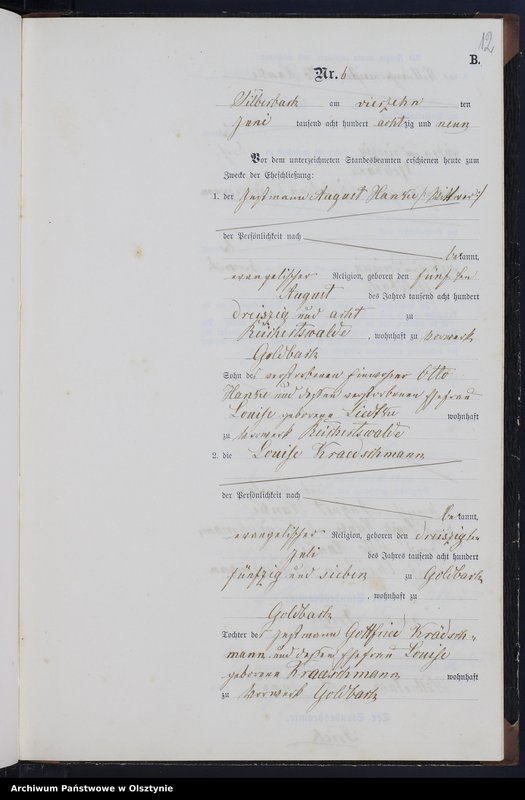 12
B.
Nr. 6
Silberbach am vierzehn ten
Juni tausend acht hundert achtzig und neun
Vor dem unterzeichneten Standesbeamten erschienen heute zum
Zwecke der Eheschließung:
1. der Instmann August Hanke /: Wittwer :/
der Persönlichkeit nach
bekannt,
evangelischer Religion, geboren den fünften
August des Jahres tausend acht hundert
dreiszig und acht zu
Reichertswalde, wohnhaft zu Vorwerk
Goldbach
Sohn des verstorbenen Einwohner Otto
Hanke und dessen verstorbenen Ehefrau
Louise geborene wohnhaft
zu Vorwerk Reichertswalde
2. die Louise Kraeschmann
der Persönlichkeit nach
bekannt,
evangelischer Religion, geboren den dreiszigten
Juli des Jahres tausend acht hundert
fünfzig und sieben zu Goldbach
, wohnhaft zu
Goldbach
Tochter des Instmann Gottfried Krädsch-
mann und dessen Ehefrau Louise
geborene wohnhaft
zu Vorwerk Goldbach
Archiwum Państwowe w Olsztynie